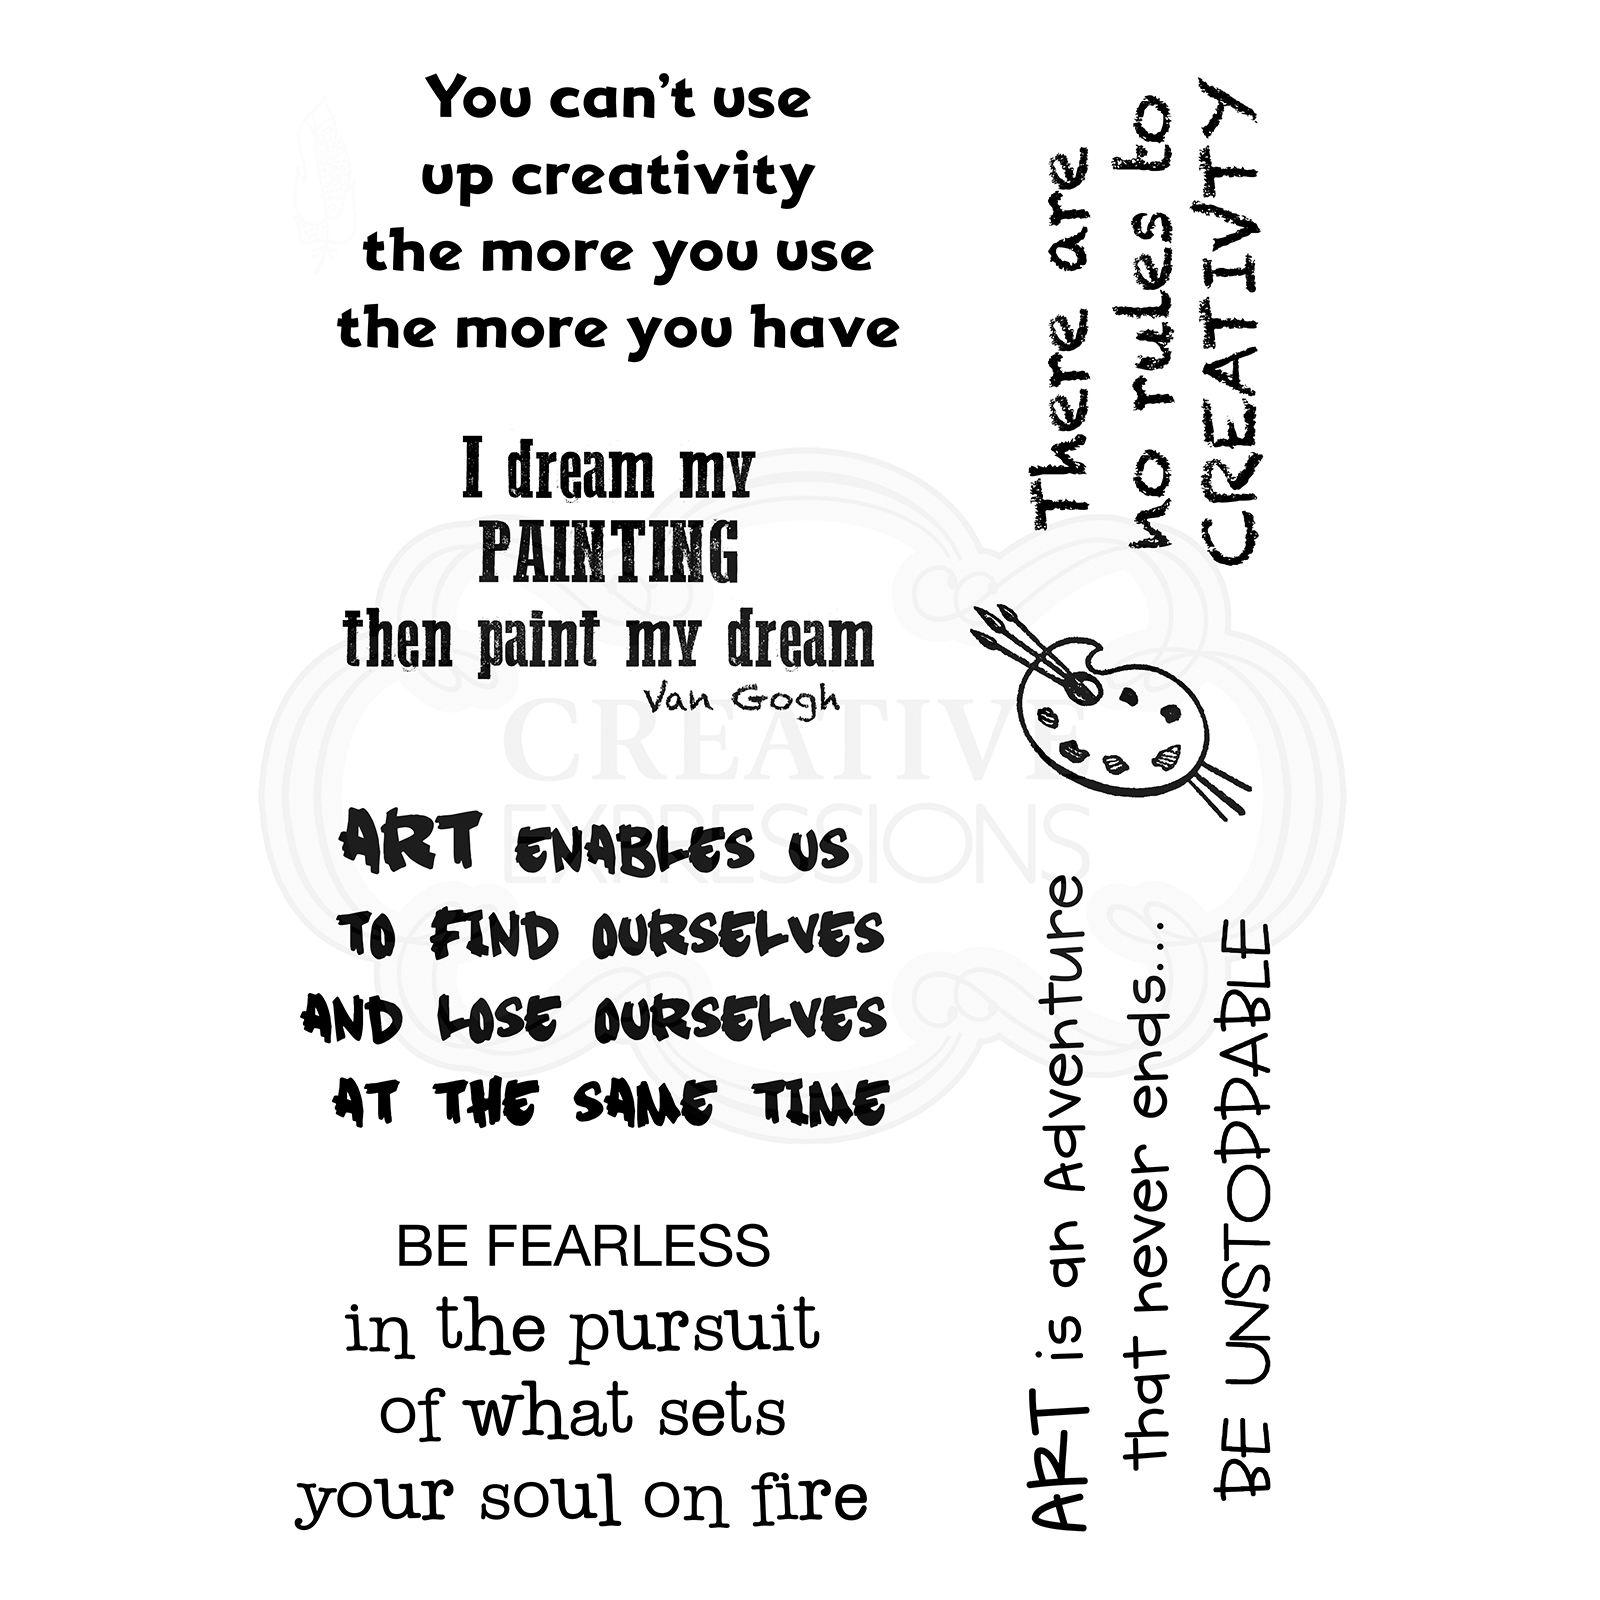 You can't use
up creativity
the more you use
the more you have
I dream my
PAINTING
then paint my dream
Van Gogh
ART ENABLES US
TO FIND OURSELVES
AND LOSE OURSELVES
AT THE SAME TIME
BE FEARLESS
in the pursuit
of what sets
your soul on fire
There are
no rules to
CREATIVITY
ART is an Adventure
that never ends...
BE UNSTOPPABLE
CREATIVE
EXPRESSIONS